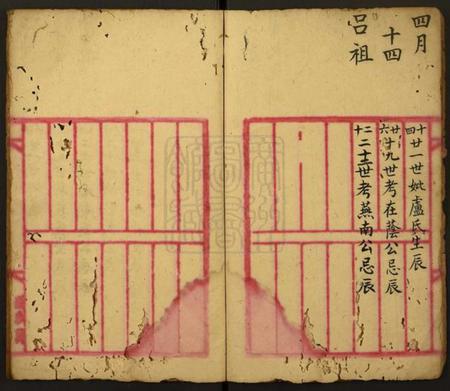 四月
十四
呂祖
十四 廿一世妣盧氏生辰
廿六 十九世考在蔭公忌辰
十二 二十三世考燕南公忌辰